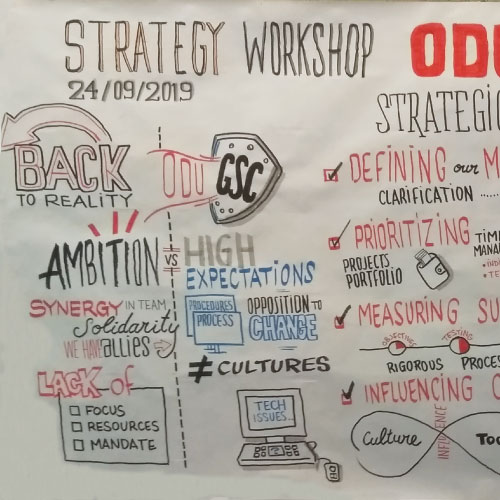 STRATEGY WORKSHOP
24/09/2019
BACK
TO REALITY
ODU GSC
AMBITION
VS
HIGH
EXPECTATIONS
SYNERGY IN TEAM
Solidarity
WE HAVE allies
LACK of
FOCUS
RESOURCES
MANDATE
PROCEDURES
PROCESS
OPPOSITION TO
CHANGE
≠ CULTURES
TECH
ISSUES...
ODU
STRATEGIC
DEFINING our M
CLARIFICATION ....
PRIORITIZING
PROJECTS
PORTFOLIO
TIME
MANA
MEASURING SU
OBJECTIVES
TESTING
RIGOROUS PROCES
INFLUENCING
Culture
INFLUENCE
Too